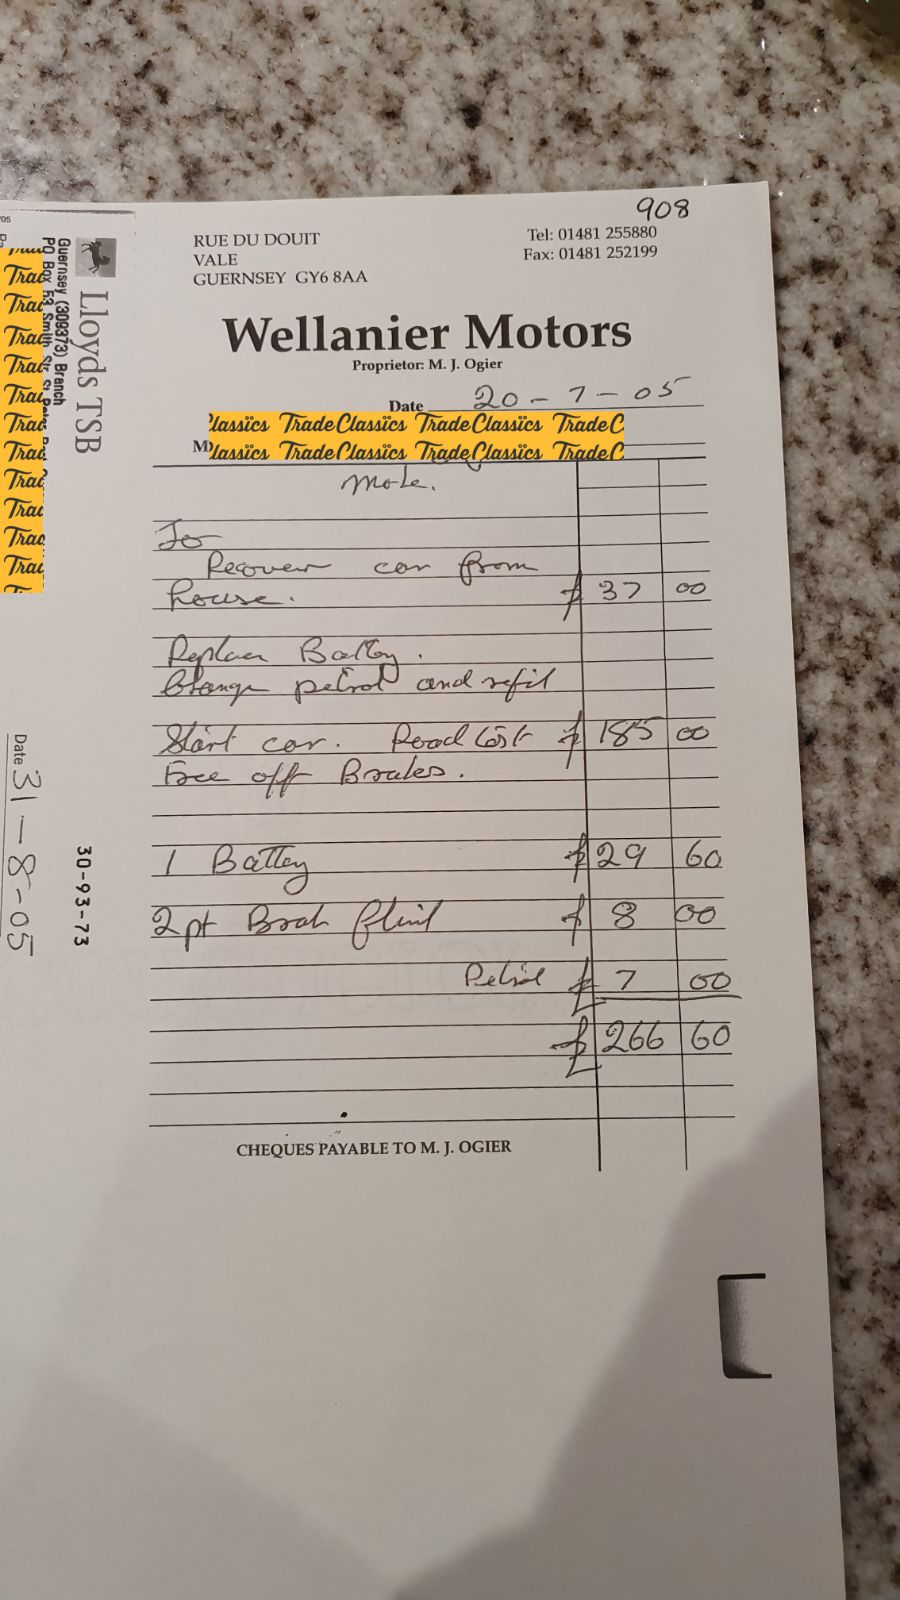 908
RUE DU DOUIT
VALE
GUERNSEY GY6 8AA
Tel: 01481 255880
Fax: 01481 252199
Wellanier Motors
Proprietor: M. J. Ogier
Date 20-7-05
lassics TradeClassics TradeClassics TradeC
M lassics TradeClassics TradeClassics TradeC
To
Recover car from
house. £ 37 00
Replace Battery.
Change petrol and refil
Start car. Road Test £ 185 00
Free off Brakes.
1 Battery £ 29 60
2 pt Brak fluid £ 8 00
Petrol £ 7 00
£ 266 60
CHEQUES PAYABLE TO M. J. OGIER
Lloyds TSB
Guernsey (309373) Branch
PO Box 53 Smith Str
30-93-73
Date 31-8-05
/05
Trad
Trad
Trad
Trad
Trad
Trad
Trad
Trad
Trad
Trad
Trad